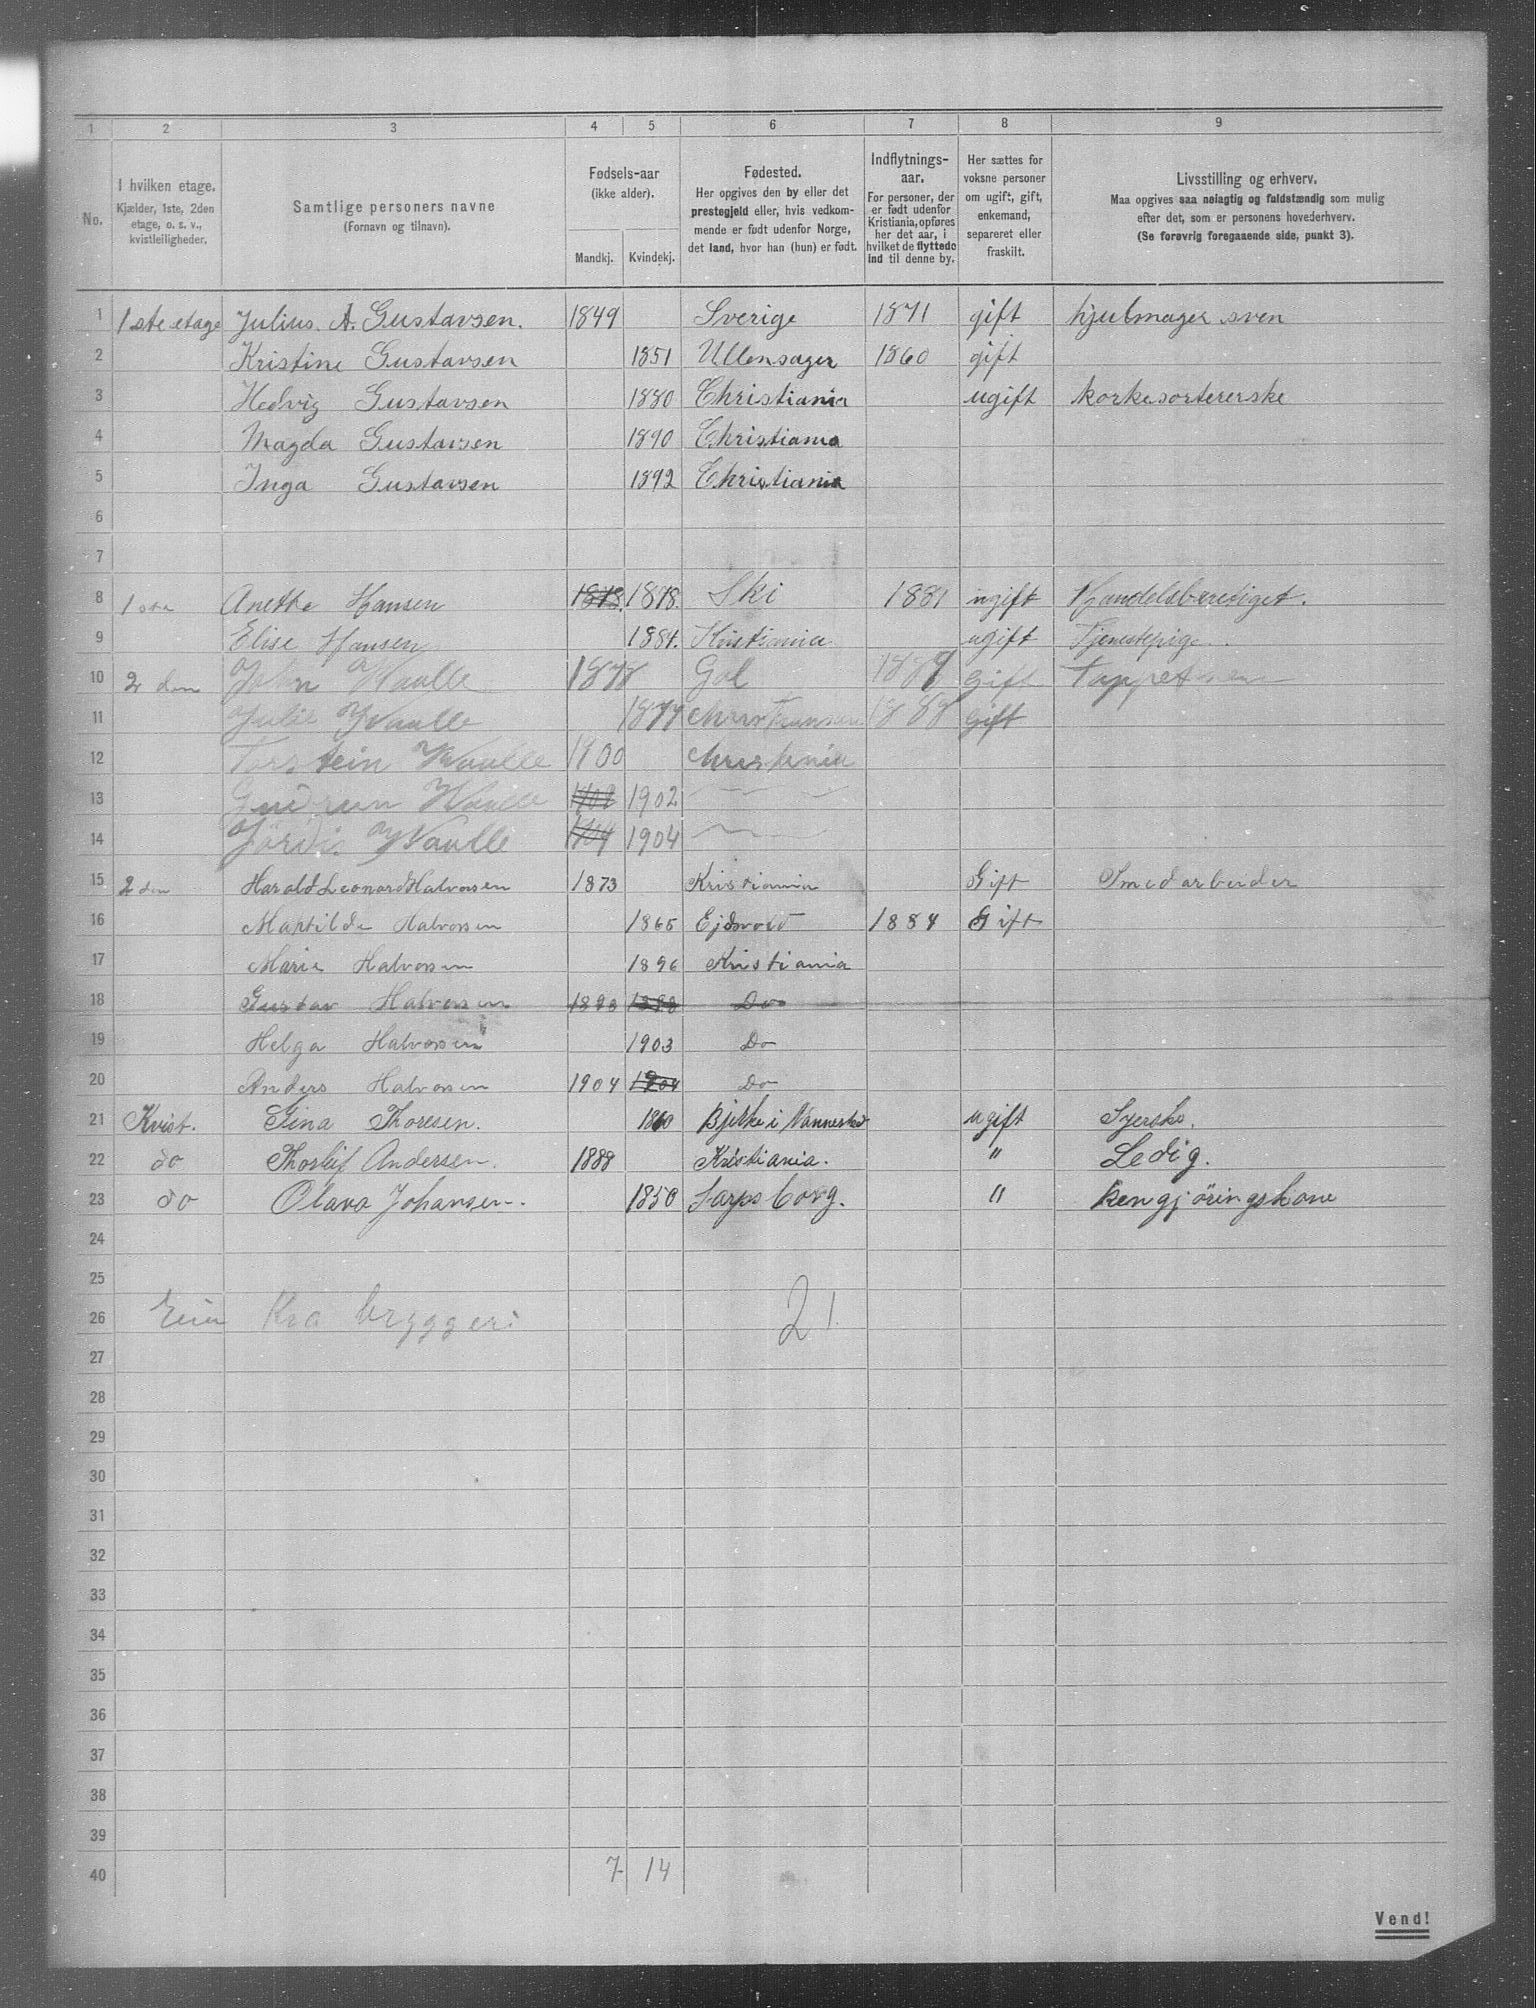 1 2 3 4 5 6 7 8 9
No.
I hvilken etage.
Kjælder, 1ste, 2den
etage, o. s. v.,
kvistleiligheder.
Samtlige personers navne
(Fornavn og tilnavn).
Fødsels-aar
(ikke alder).
Mandkj. Kvindekj.
Fødested.
Her opgives den by eller det
prestegjeld eller, hvis vedkom-
mende er født udenfor Norge,
det land, hvor han (hun) er født.
Indflytnings-
aar.
For personer, der
er født udenfor
Kristiania, opføres
her det aar, i
hvilket de flyttede
ind til denne by.
Her sættes for
voksne personer
om ugift, gift,
enkemand,
separeret eller
fraskilt.
Livsstilling og erhverv.
Maa opgives saa nøiagtig og fuldstændig som mulig
efter det, som er personens hovederhverv.
(Se forøvrig foregaaende side, punkt 3).
1 1ste etage Julius. A. Gustavsen. 1849 Sverige 1871 gift hjulmager sven
2 Kristine Gustavsen 1851 Ullensager 1860 gift
3 Hedvig Gustavsen 1880 Christiania ugift korkesortererske
4 Magda Gustavsen 1890 Christiania
5 Inga Gustavsen 1892 Christiania
6
7
8 1ste Anethe Hansen 1878. 1878. Ski 1881 ugift Handelsberetiget.
9 Elise Hansen 1884. Kristiania ugift Tjenestepige.
10 2 den John Waalle 1878 Gol 1889 gift
11 Julie Waalle 1877 1888 Gift
12 Torstein Waalle 1900 Christiania
13 Gudrun Waalle 1902 1902
14 Jördis Waalle 1904 1904
15 2 den Harald Leonard Halvorsen 1873 Kristiania Gift Smedarbeider
16 Maptilde Halvorsen 1865 Ejdsvold 1884 Gift
17 Marie Halvorsen 1896 Kristiania
18 Gustav Halvorsen 1898 1898 Do
19 Helga Halvorsen 1903 Do
20 Anders Halvorsen 1904 1904 Do
21 Kvist. Gina Thoresen. 1860 Bjelke i Vannesko ugift Syerske.
22 do Thorleif Andersen. 1888 Kristiania. " Ledig.
23 do Olava Johansen. 1850 Sarpsborg. " Rengjöringskone
24
25
26 Eier Kra bryggeri 21.
27
28
29
30
31
32
33
34
35
36
37
38
39
40 7 14
Vend!